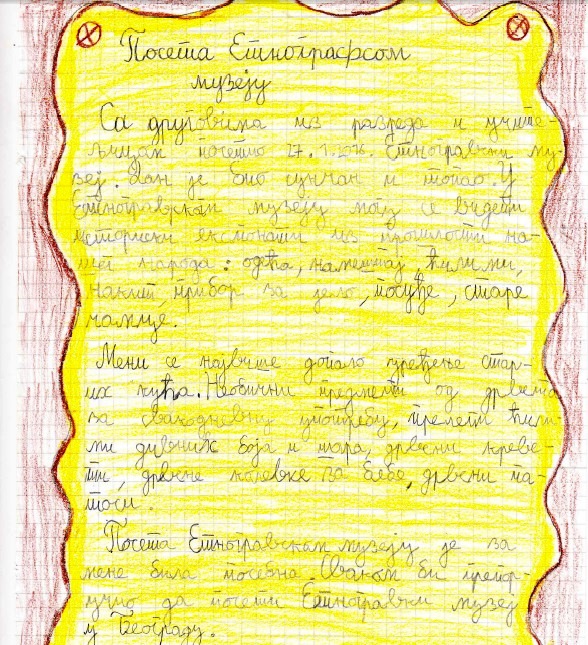 Посета Етнографсом
музеју
Са друговима из разреда и учите-
љицам посетио 27.1.2016. Етногравски му-
зеј. Дан је био сунчан и топао. У
Етногравском музеју могу се видети
историски експонати из прошлости на-
шег народа: одећа, намештај, ћилими,
накит, прибор за јело, посуђе, старе
чампе.
Мени се највише допало уређење стар-
их кућа. Необични предмети од дрвета
за свакодневну употребу, прелепи ћили-
ми дивних боја и шара, дрвени креве-
ти, дрвене колевке за бебе, дрвени па-
тоси.
Посета Етногравском музеју је за
мене била посебна. Сваком би препор-
учио да посети Етногравки музеј
у Београду.